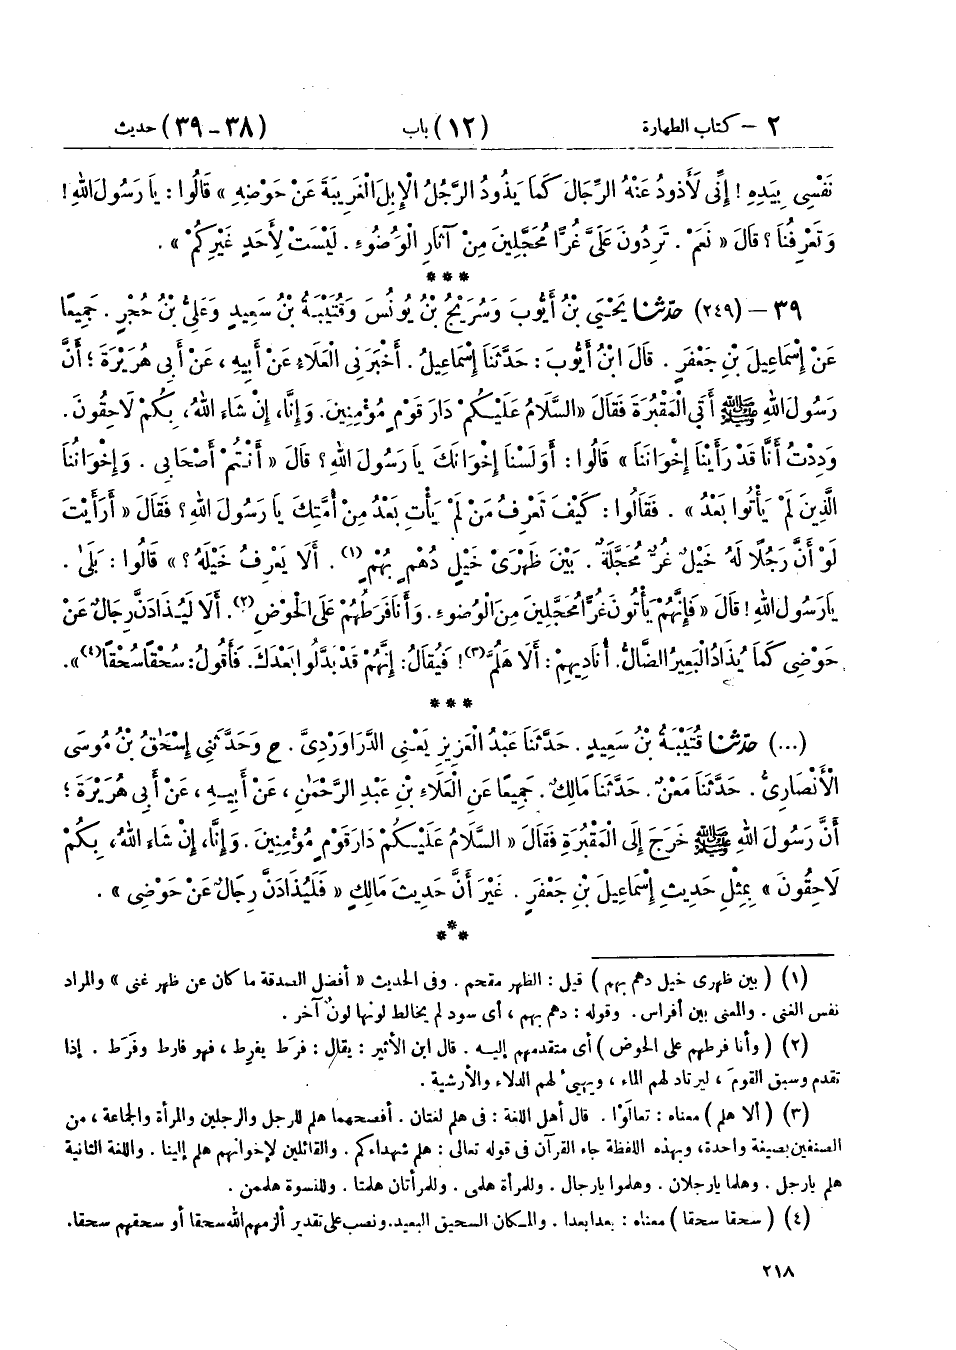 ٢ – كتاب الطهارة (١٢) باب (٣٨-٣٩) حديث
نَفْسِى بِيَدِهِ ! إِنِّى لَأَذُودُ عَنْهُ الرِّجَالَ كَمَا يَذُودُ الرَّجُلُ الْإِبِلَ الْغَرِيبَةَ عَنْ حَوْضِهِ » قَالُوا : يَا رَسُولَ اللهِ !
وَتَعْرِفُنَا ؟ قَالَ « نَعَمْ . تَرِدُونَ عَلَىَّ غُرًّا مُحَجَّلِينَ مِنْ آثَارِ الْوُضُوءِ . لَيْسَتْ لِأَحَدٍ غَيْرِكُمْ » .
* * *
٣٩ – (٢٤٩) حدّثنا يَحْيَىَ بْنُ أَيُّوبَ وَسُرَيْجُ بْنُ يُونُسَ وَقُتَيْبَةُ بْنُ سَعِيدٍ وَعَلِىُّ بْنُ حُجْرٍ . جَمِيعًا
عَنْ إِسْمَاعِيلَ بْنِ جَعْفَرٍ . قَالَ ابْنُ أَيُّوبَ : حَدَّثَنَا إِسْمَاعِيلُ . أَخْبَرَنِى الْعَلَاءُ عَنْ أَبِيهِ ، عَنْ أَبِى هُرَيْرَةَ ؛ أَنَّ
رَسُولَ اللهِ ﷺ أَتَى الْمَقْبُرَةَ فَقَالَ «السَّلَامُ عَلَيْكُمْ دَارَ قَوْمٍ مُؤْمِنِينَ. وَإِنَّا، إِنْ شَاءَ اللهُ، بِكُمْ لَاحِقُونَ.
وَدِدْتُ أَنَّا قَدْ رَأَيْنَا إِخْوَانَنَا » قَالُوا : أَوَلَسْنَا إِخْوَانَكَ يَا رَسُولَ اللهِ ؟ قَالَ « أَنْتُمْ أَصْحَابِى . وَإِخْوَانُنَا
الَّذِينَ لَمْ يَأْتُوا بَعْدُ » . فَقَالُوا : كَيْفَ تَعْرِفُ مَنْ لَمْ يَأْتِ بَعْدُ مِنْ أُمَّتِكَ يَا رَسُولَ اللهِ ؟ فَقَالَ « أَرَأَيْتَ
لَوْ أَنَّ رَجُلًا لَهُ خَيْلٌ غُرٌّ مُحَجَّلَةٌ . بَيْنَ ظَهْرَىْ خَيْلٍ دُهْمٍ بُهْمٍ (١) . أَلَا يَعْرِفُ خَيْلَهُ ؟ » قَالُوا : بَلَىٰ .
يَا رَسُولَ اللهِ ! قَالَ « فَإِنَّهُمْ يَأْتُونَ غُرًّا مُحَجَّلِينَ مِنَ الْوُضُوءِ . وَأَنَا فَرَطُهُمْ عَلَى الْحَوْضِ (٢). أَلَا لَيُذَادَنَّ رِجَالٌ عَنْ
حَوْضِى كَمَا يُذَادُ الْبَعِيرُ الضَّالُّ. أُنَادِيهِمْ : أَلَا هَلُمَّ (٣)! فَيُقَالُ: إِنَّهُمْ قَدْ بَدَّلُوا بَعْدَكَ. فَأَقُولُ: سُحْقًا سُحْقًا (٤)».
* * *
(...) حدّثنا قُتَيْبَةُ بْنُ سَعِيدٍ . حَدَّثَنَا عَبْدُ الْعَزِيزِ يَعْنِى الدَّرَاوَرْدِىَّ . ح وَحَدَّثَنِى إِسْحَٰقُ بْنُ مُوسَى
الْأَنْصَارِىُّ . حَدَّثَنَا مَعْنٌ . حَدَّثَنَا مَالِكٌ . جَمِيعًا عَنِ الْعَلَاءِ بْنِ عَبْدِ الرَّحْمَٰنِ ، عَنْ أَبِيهِ ، عَنْ أَبِى هُرَيْرَةَ ؛
أَنَّ رَسُولَ اللهِ ﷺ خَرَجَ إِلَى الْمَقْبُرَةِ فَقَالَ « السَّلَامُ عَلَيْكُمْ دَارَ قَوْمٍ مُؤْمِنِينَ . وَإِنَّا، إِنْ شَاءَ اللهُ، بِكُمْ
لَاحِقُونَ » بِمِثْلِ حَدِيثِ إِسْمَاعِيلَ بْنِ جَعْفَرٍ . غَيْرَ أَنَّ حَدِيثَ مَالِكٍ « فَلَيُذَادَنَّ رِجَالٌ عَنْ حَوْضِى » .
***
(١) ( بين ظهرى خيل دهم بهم ) قيل : الظهر مقحم . وفى الحديث « أفضل الصدقة ما كان عن ظهر غنى » والمراد
نفس الغنى . والمعنى بين أفراس . وقوله : دهم بهم ، أى سود لم يخالط لونها لونٌ آخر .
(٢) ( وأنا فرطهم على الحوض ) أى متقدمهم إليه . قال ابن الأثير : يقال : فرَط يفرِط ، فهو فارط وفَرَط . إذا
تقدم وسبق القومَ ، ليرتاد لهم الماء ، ويهيىء لهم الدلاء والأرشية .
(٣) ( ألا هلم ) معناه : تعالَوْا . قال أهل اللغة : فى هلم لغتان . أفصحهما هلم للرجل والرجلين والمرأة والجماعة ، من
الصنفين بصيغة واحدة، وبهذه اللفظة جاء القرآن فى قوله تعالى : هلم شهداءكم . والقائلين لإخوانهم هلم إلينا . واللغة الثانية
هلم يارجل . وهلما يارجلان . وهلموا يارجال . وللمرأة هلمى . وللمرأتان هلمتا . وللنسوة هلمن .
(٤) ( سحقا سحقا ) معناه : بعدا بعدا . والمكان السحيق البعيد. ونصب على تقدير ألزمهم الله سحقا أو سحقهم سحقا.
٢١٨